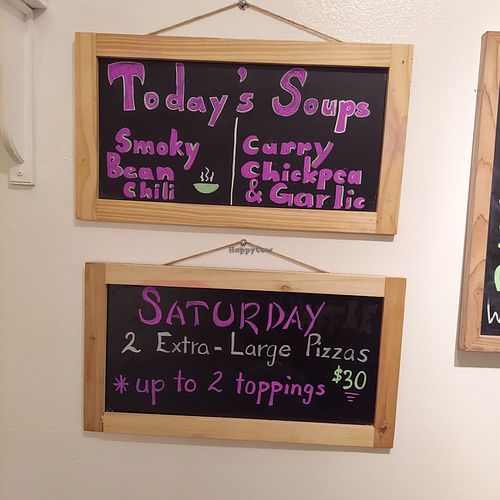 Today's Soups
Smoky
Bean
Chili
Curry
Chickpea
& Garlic
HappyCow
SATURDAY
2 Extra-Large Pizzas
* up to 2 toppings $30
W